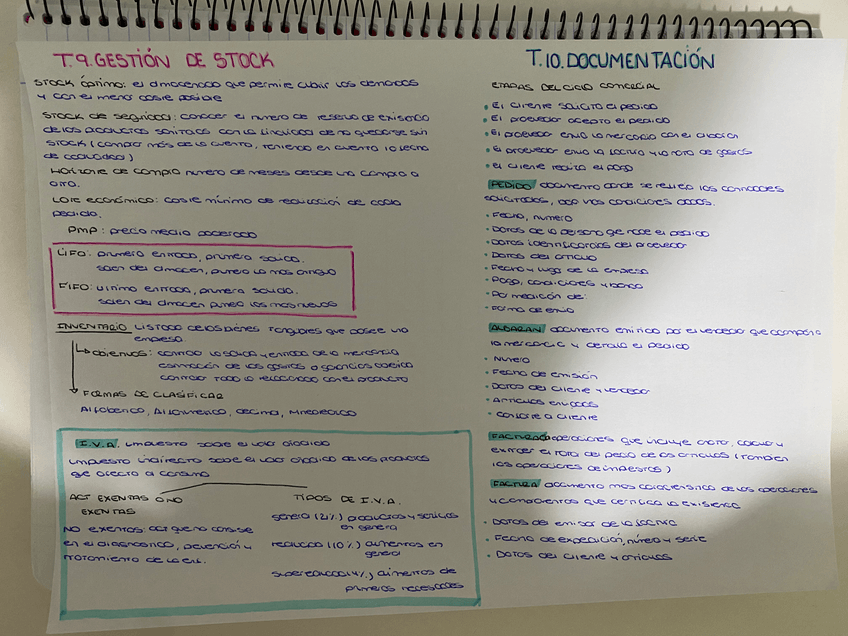 T.9. GESTIÓN DE STOCK
STOCK óptimo: el almacenado que permite cubrir las demandas
y con el menor coste posible
STOCK de seguridad: conocer el numero de reserva de existencia
de los productos sanitarios con la finalidad de no quedarse sin
STOCK (compra más de la cuenta, teniendo en cuenta la fecha
de caducidad)
Horizonte de compra numero de meses desde una compra a
otra.
Lote económico: coste mínimo de realización de cada
pedido.
PMP: precio medio ponderado
LIFO: primero entrado, primero salido.
salen del almacen, primero lo mas antiguo
FIFO: ultimo entrado, primera salida.
salen del almacen primero los mas nuevos
INVENTARIO Listado de los bienes tangibles que posee una
empresa.
Objetivos: control la salida y entrada de la mercancia
estimación de los gastos o ganancias
controlar todo lo relacionado con el producto
FORMAS DE CLASIFICAR
Alfabetico, Alfanumerico, decimal, Mnemotecnico
I.V.A. impuesto sobre el valor añadido
impuesto indirecto sobre el valor añadido de los productos
que afecta a consumo
ACT EXENTAS O NO
EXENTAS
NO exentas: act que no consiste
en el diagnostico, prevención y
tratamiento de la enf.
TIPOS DE I.V.A.
general (21%) productos y servicios
en general
reducido (10%) alimentos en
general
superreducido (4%) alimentos de
primeras necesidades
T.10. DOCUMENTACIÓN
ETAPAS DEL CICLO COMERCIAL
• El cliente solicita el pedido
• El proveedor acepta el pedido
• El proveedor envia la mercancia con el albaran
• el proveedor envia la factura y la nota de gastos
• el cliente realiza el pago
PEDIDO documento donde se refleja los cantidades
solicitadas, bajo unas condiciones dadas.
• Fecha, numero
• Datos de la persona que hace el pedido
• Datos identificativos del proveedor
• Datos del articulo
• Fecha y lugar de la empresa
• Pago, condiciones y
• Por mediación de:
• Forma de envio
ALBARAN documento emitido por el vendedor que acompaña
la mercancia y detalla el pedido
• Numero
• Fecha de emisión
• Datos del cliente y vendedor
• Articulos enviados
• conforme a cliente
FACTURACION operaciones que incluye anotar, calcular y
extraer el total del precio de los articulos (tambien
los operaciones de impuestos)
FACTURA documento mas caracteristico de las operaciones
y condiciones que certifica la existencia
• Datos de emisor de la factura
• Fecha de expedición, número y serie
• Datos del cliente y articulos